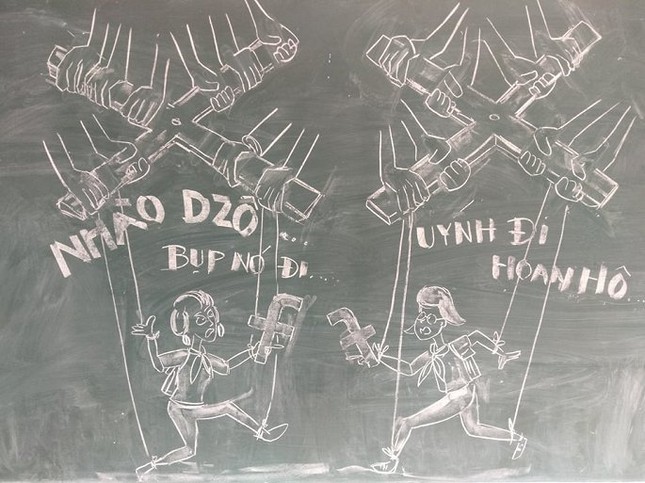 NHÀO DZÔ...
BỤP NÓ ĐI...
UYNH ĐI
HOAN HÔ...